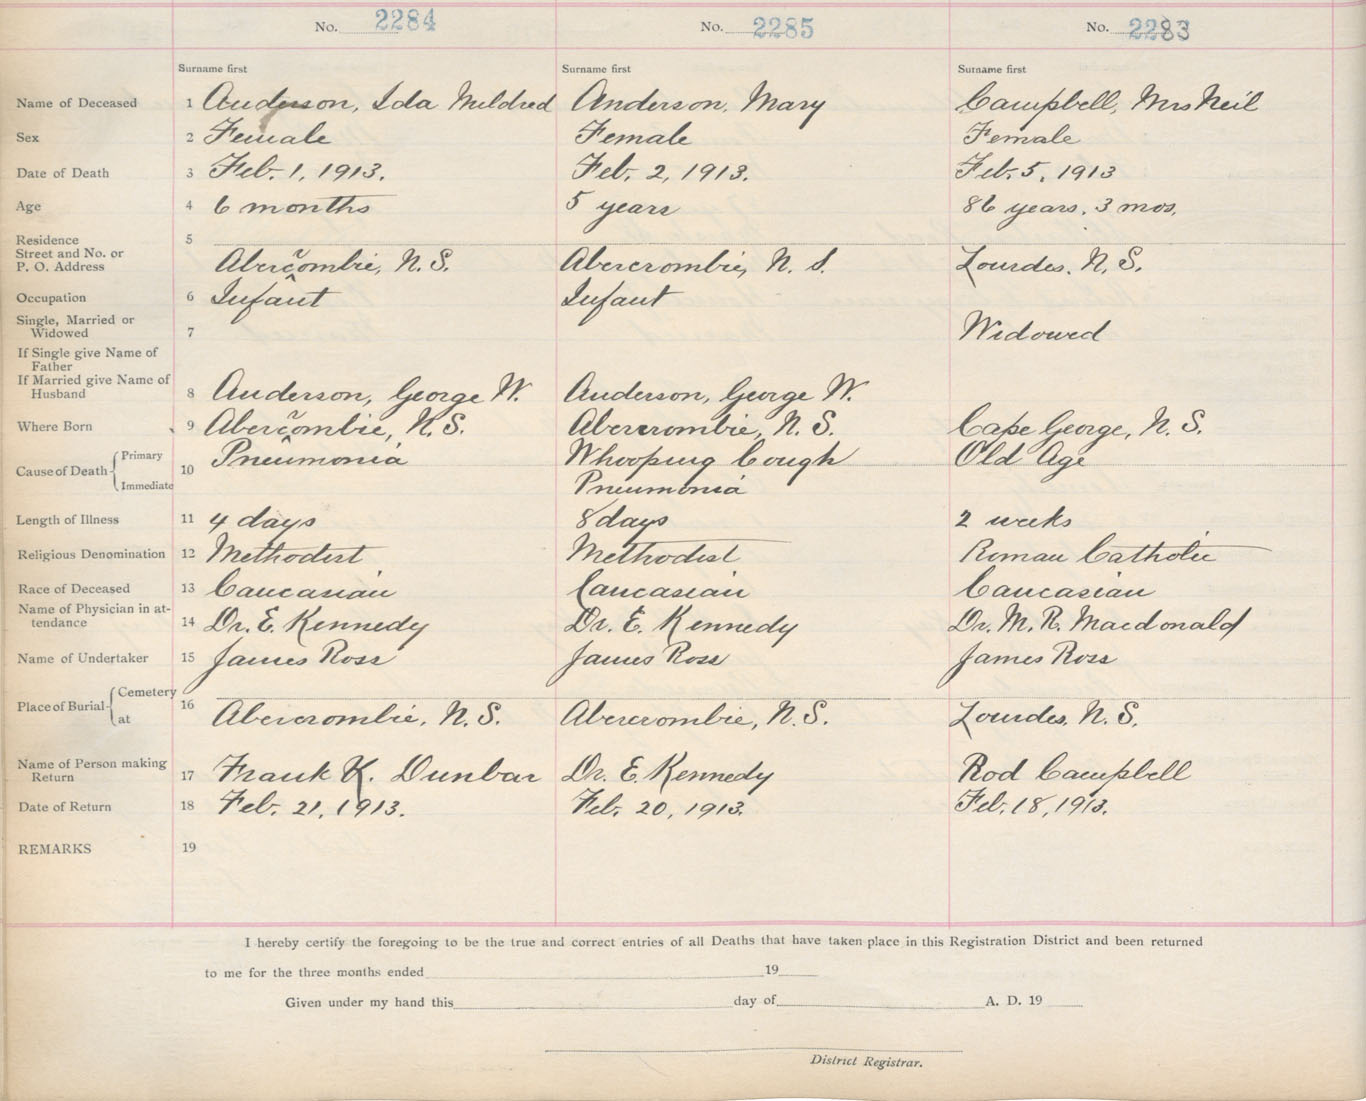 No. 2284 No. 2285 No. 2283
Surname first Surname first Surname first
Name of Deceased 1 Anderson, Ida Mildred Anderson, Mary Campbell, Mrs Neil
Sex 2 Female Female Female
Date of Death 3 Feb. 1, 1913. Feb. 2, 1913. Feb. 5, 1913
Age 4 6 months 5 years 86 years. 3 mos.
Residence 5
Street and No. or
P. O. Address Abercombie, N.S. Abercrombie, N. S. Lourdes. N.S.
Occupation 6 Infant Infant
Single, Married or
Widowed 7 Widowed
If Single give Name of
Father
If Married give Name of
Husband 8 Anderson, George W. Anderson, George W.
Where Born 9 Abercombie, N.S. Abercrombie, N.S. Cape George, N.S.
Cause of Death Primary 10 Pneumonia Whooping Cough Old Age
Immediate Pneumonia
Length of Illness 11 4 days 8 days 2 weeks
Religious Denomination 12 Methodist Methodist Roman Catholic
Race of Deceased 13 Caucasian Caucasian Caucasian
Name of Physician in at-
tendance 14 Dr. E. Kennedy Dr. E. Kennedy Dr. M. R. Macdonald
Name of Undertaker 15 James Ross James Ross James Ross
Place of Burial Cemetery 16
at Abercrombie, N.S. Abercrombie, N.S. Lourdes, N.S.
Name of Person making
Return 17 Frank K. Dunbar Dr. E. Kennedy Rod Campbell
Date of Return 18 Feb. 21, 1913. Feb. 20, 1913. Feb. 18, 1913.
REMARKS 19
I hereby certify the foregoing to be the true and correct entries of all Deaths that have taken place in this Registration District and been returned
to me for the three months ended 19
Given under my hand this day of A. D. 19
District Registrar.